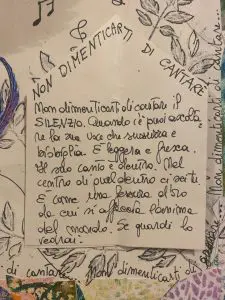 NON DIMENTICARTI DI CANTARE
Non dimenticarti di cantare il
SILENZIO. Quando c'è puoi ascolta
re la sua voce che sussurra e
bisbiglia. È leggera e fresca.
Il suo canto è dentro. Nel
centro di quel dentro ci sei tu
È come una fessura d'oro
da cui si affaccia l'anima
del mondo. Se guardi la
vedrai.
Non dimenticarti di cantare...
di cantare
Non dimenticarti di